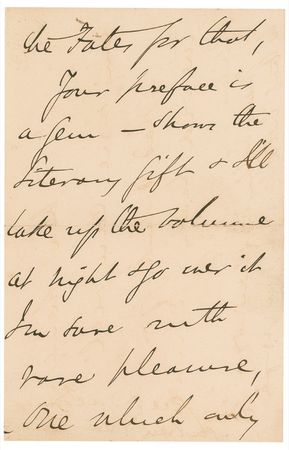 the Fates for that,
Your preface is
a gem – shows the
Literary Gift & I'll
take up the volume
at night & go over it
I'm sure with
rare pleasure,
one which only